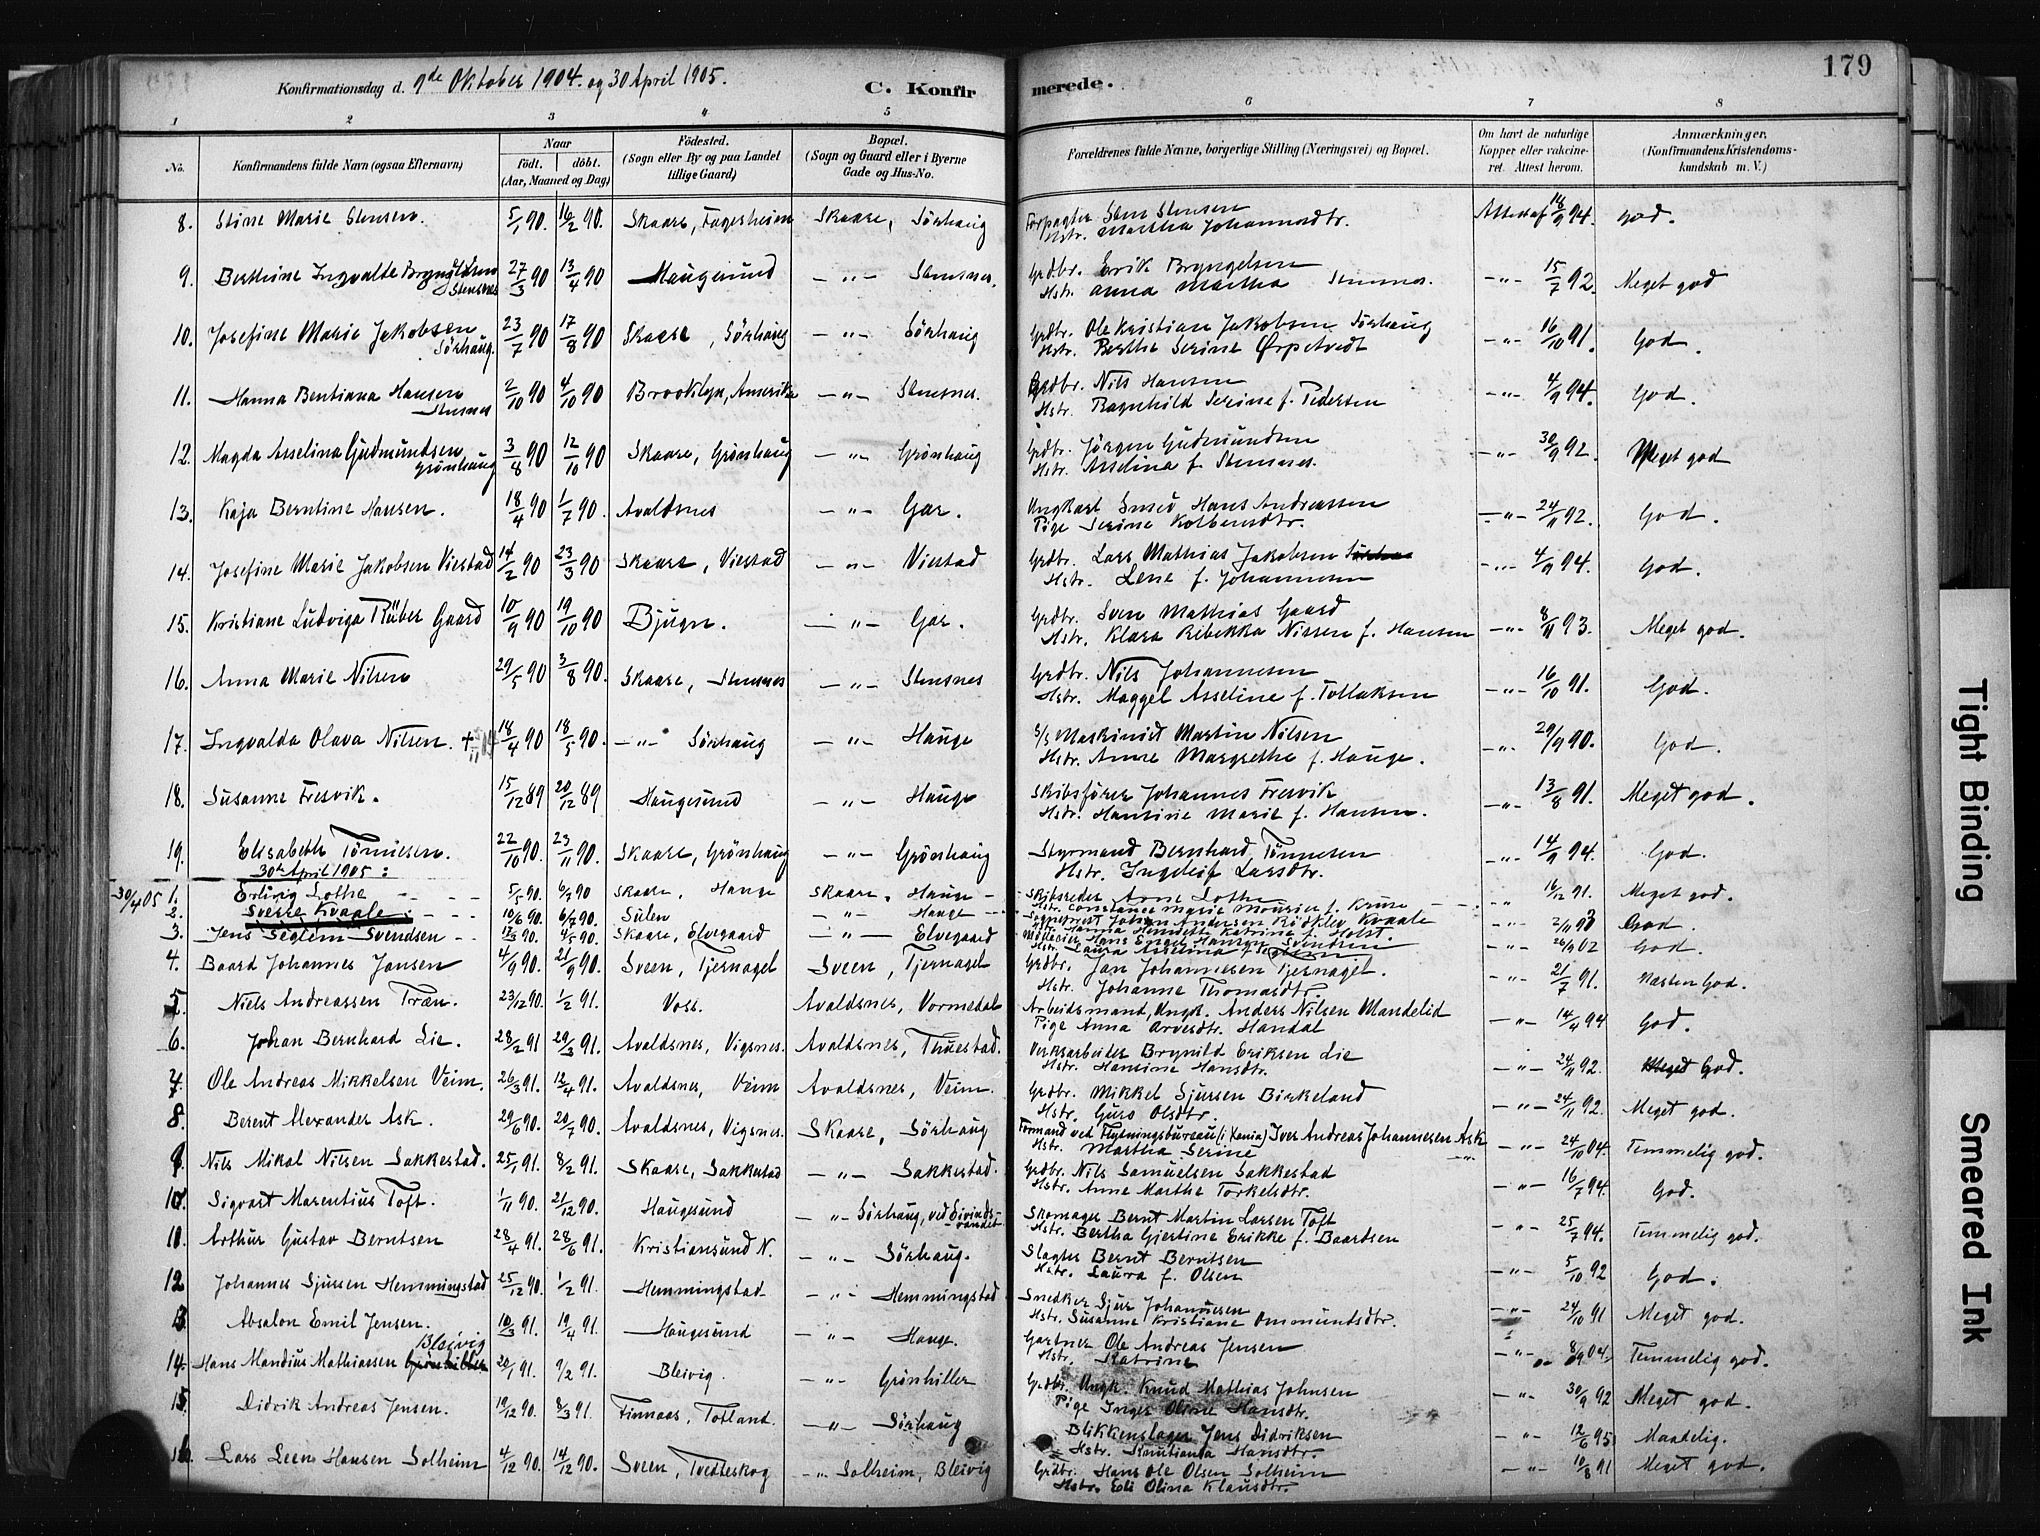 Konfirmationsdag d. 9de Oktober 1904. og 30 April 1905. C. Konfirmerede. 179
1 2 3 4 5 6 7 8
No. Konfirmandens fulde Navn (ogsaa Efternavn) Naar født. døbt. (Aar, Maaned og Dag) Fødested. (Sogn eller By og paa Landet tillige Gaard) Bopæl. (Sogn og Gaard eller i Byerne Gade og Hus-No. Forældrenes fulde Navne, borgerlige Stilling (Næringsvei) og Bopæl. Om havt de naturlige Kopper eller vakcineret. Attest herom. Anmærkninger. (Konfirmandens Kristendomskundskab m. V.)
8. Stine Marie Stensen. 5/1 90. 16/2 90. Skaare, Fagerheim Skaare, Sörhaug Forpagter Sten Stensen Hstr. Martha Johannesdtr. Attest af 14/9 94. God.
9. Berthine Ingvalte Bryngelsen Stensnes 27/3 90 13/4 90 Haugesund — " — Stensnes. Grdbr. Erik Bryngelsen Hstr. Anna Martha Stensnes. — " — 15/7 92. Meget god
10. Josefine Marie Jakobsen Sörhaug. 23/7 90 17/8 90 Skaare, Sörhaug — " — Sörhaug Grdbr. Ole Kristian Jakobsen Sörhaug Hstr. Berthe Serine Ørpetvedt — " — 16/10 91. God.
11. Hanna Bentiana Hansen Stensnes 2/10 90 4/10 90 Brooklyn, Amerika — " — Stensnes. Grdbr. Nils Hansen Hstr. Ragnhild Serine f. Pedersen — " — 4/9 94. God.
12. Magda Asselina Gudmundsen Grönhaug 3/8 90 12/10 90 Skaare, Grönhaug — " — Grönhaug Grdbr. Jörgen Gudmundsen Hstr. Asselina f. Stensnes. — " — 30/9 92. Meget god
13. Kaja Berntine Hansen. 18/4 90 1/7 90. Avaldsnes — " — Gar. Ungkarl Smed Hans Andreassen Pige Serine Kolbensdtr. — " — 24/11 92. God.
14. Josefine Marie Jakobsen Viestad 14/2 90 23/3 90 Skaare, Viestad — " — Viestad Grdbr. Lars Mathias Jakobsen Hstr. Lene f. Johannesen — " — 4/9 94. God.
15. Kristiane Ludviga Rüber Gaard 10/9 90 19/10 90 Bjugn. — " — Gar. Grdbr. Sven Mathias Gaard Hstr. Klara Ribekka Nissen f. Hansen — " — 8/11 93. Meget god.
16. Anna Marie Nilsen 29/5 90 3/8 90. Skaare, Stensnes — " — Stensnes Grdbr. Nils Johannesen Hstr. Maggel Asseline f. Tollaksen — " — 16/10 91. God.
17. Ingvalda Olava Nilsen. 14/4 90 18/5 90. — " — Sörhaug — " — Hauge S/S Maskinist Martin Nilsen Hstr. Anne Margrethe f. Hauge. — " — 29/9 90. God.
18. Susanne Fresvik. 15/12 89 20/12 89 Haugesund — " — Hauge Skibsfører Johannes Fresvik Hstr. Hansine Marie f. Hansen. — " — 13/8 91. Meget god.
19. Elisabeth Tönnesen. 22/10 90. 23/11 90. Skaare, Grönhaug — " — Grönhaug Styrmand Bernhard Tönnesen Hstr. Ingeleif Larsdtr. — " — 14/9 94. God.
30te April 1905:
30/4 05 1. Erling Lothe 5/1 90. 6/7 90 Skaare, Hauge Skaare, Hauge Skibsreder Arne Lothe Hstr. Constance Marie Mourier f. Kruse — " — 16/12 91. Meget god.
2. Sverre Kvaale. 10/6 90. 6/7 90. Sulen — " — Hauge Sognepræst Johan Andersen Rödklev Kvaale Hstr. Hanna Henriette Katrine f. Holst. — " — 2/11 03 God.
3. Jens Seglem Svendsen 12/3 90. 4/5 90. Skaare, Elvegaard — " — Elvegaard Hans Engel Hansen Svendsen Hstr. Laura Asselina f. Seglem — " — 26/9 02 God.
4. Baard Johannes Jansen 4/9 90. 21/9 90. Sveen, Tjernagel Sveen, Tjernagel Grdbr. Jan Johannesen Tjernagel. Hstr. Johanne Thomasdtr. — " — 21/7 91. Næsten God.
5. Niels Andreassen Træn. 23/12 90. 1/2 91. Voss. Avaldsnes, Vormedal Arbeidsmand, Ungk. Anders Nilsen Mandelid Pige Anna Arvesdtr. Handal — " — 14/4 94 God.
6. Johan Bernhard Lie. 28/2 91 29/3 91. Avaldsnes, Vigsnes. Avaldsnes, Thuestad. Verksarbeider Brynild Eriksen Lie Hstr. Hansine Hansdtr. — " — 24/11 92. Meget God.
7. Ole Andreas Mikkelsen Veim. 26/3 91. 12/4 91. Avaldsnes, Veim Avaldsnes, Veim. Grdbr. Mikkel Sjursen Birkeland Hstr. Guro Olsdtr. — " — 24/11 92. Meget god.
8. Berent Alexander Ask. 29/6 90. 20/7 90. Avaldsnes, Vigsnes. Skaare, Sörhaug Formand ved Flytningsbureau (i Xania) Iver Andreas Johannesen Ask Hstr. Martha Serine — " — 24/10 04. Temmelig god.
9. Nils Mikal Nilsen Sakkestad. 25/1 91. 8/2 91. Skaare, Sakkestad — " — Sakkestad. Grdbr. Nils Samuelsen Sakkestad Hstr. Anne Marthe Torkelsdtr. — " — 16/7 94. God.
10. Sigvart Marentius Toft. 1/11 90. 21/12 90. Haugesund — " — Sörhaug, ved Eivindsvandet. Skomager Bernt Martin Larsen Toft Hstr. Bertha Gjertine Erikke f. Baardsen — " — 25/7 94. Temmelig god.
11. Arthur Gustav Berntsen 28/4 91. 28/6 91. Kristiansund N. — " — Sörhaug. Slagter Bernt Berntsen Hstr. Laura f. Olsen — " — 5/10 92 God.
12 Johannes Sjursen Hemmingstad 25/12 90. 1/2 91. Hemmingstad — " — Hemmingstad Snedker Sjur Johannesen Hstr. Susanne Kristiane Ommundsdtr. — " — 24/10 91 Meget god.
13. Absalon Emil Jensen. 10/3 91. 19/4 91. Haugesund — " — Hauge. Gartner Ole Andreas Jensen Hstr. Katrine — " — 8/9 04. Temmelig god.
14. Hans Mandius Mathiassen Grönhiller Bleivig 20/1 91. 9/2 91. Bleivig. — " — Grönhiller Grdbr. Ungk. Knud Mathias Johnsen Pige Inger Oline Hansdtr. — " — 30/9 92 Meget god.
15. Didrik Andreas Jensen. 19/12 90. 8/3 91. Finnaas, Totland. — " — Sörhaug Blikkenslager Jens Didriksen Hstr. Knutianna Hansdtr. — " — 12/6 95 Maadelig.
16. Lars Leen Hansen Solheim 4/12 90. 14/12 90. Sveen, Tvedteskog — " — Solheim, Bleivig Grdbr. Hans Ole Olsen Solheim Hstr. Eli Olina Klausdtr. — " — 10/8 91 Meget god.
Tight Binding
Smeared Ink